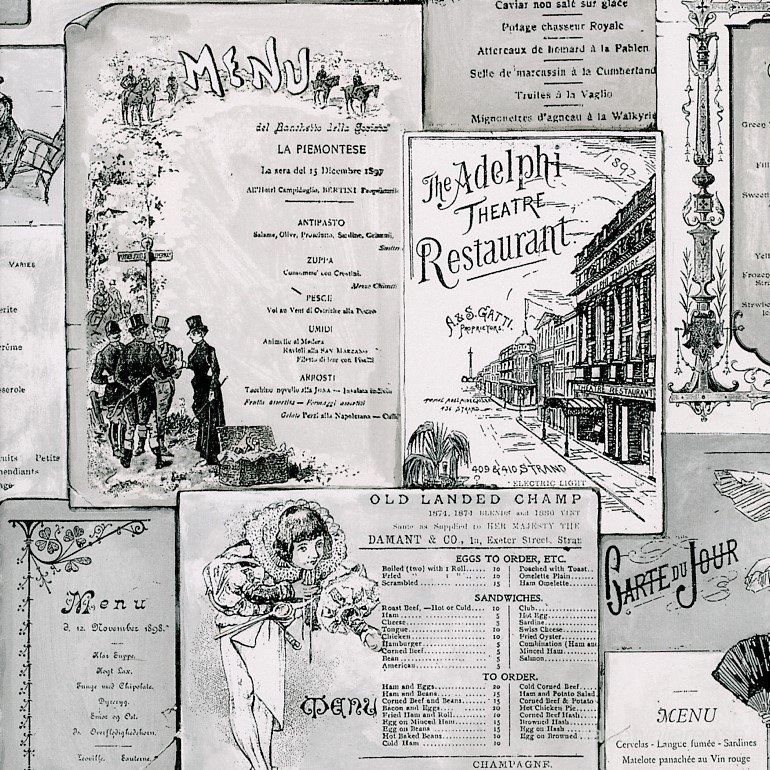 Caviar non salé sur glace
Potage chasseur Royale
Attereaux de homard à la Pahlen
Selle de marcassin à la Cumberland
Truites à la Vaglio
Mignonettes d'agneau à la Walkyrie
MENU
del Banchetto della Società
LA PIEMONTESE
La sera del 15 Dicembre 1897
All'Hotel Campidoglio, BERTINI Proprietario
ANTIPASTO
Salame, Olive, Prosciutto, Sardine,
ZUPPA
Consommé con Crostini.
PESCE
Vol au Vent di Ostriche alla
UMIDI
Animelle al Madera
Ravioli alla SAN MARZANO
Filetto di bue con Piselli
ARROSTI
Tacchino novello alla
Frutta assortita — Formaggi assortiti
Gelato Pezzi alla Napoletana — Caffè
The Adelphi
THEATRE
Restaurant.
1892
A & S. GATTI.
PROPRIETORS.
ADELPHI THEATRE
THEATRE RESTAURANT
409 & 410 STRAND
ELECTRIC LIGHT
VARIES
Petits
Green
Sweet
Menu
d. 12. November 1898.
Klar Suppe.
Kogt Lax.
Tunge med Chipolata.
Dyreryg.
Emise og Ost.
Is. Overflødighedshorn.
Leoville. Sauterne.
OLD LANDED CHAMP
1874, 1874 BLENDE and 1880 VINT
Same as Supplied to HER MAJESTY THE
DAMANT & CO., 1a, Exeter Street, Stran
EGGS TO ORDER, ETC.
Boiled (two) with 1 Roll.. 10
Fried " 1 " .. 10
Scrambled 15
Poached with Toast..
Omelette Plain
Ham Omelette
SANDWICHES.
Roast Beef,—Hot or Cold 10
Ham 5
Cheese 5
Tongue 5
Chicken 10
Hamburger 5
Corned Beef 5
Bean 5
American 5
Club
Hot Egg
Sardine
Swiss Cheese
Fried Oyster
Combination (Ham and
Minced Ham
Salmon
TO ORDER.
Ham and Eggs 20
Ham and Beans 15
Corned Beef and Beans 15
Bacon and Eggs 20
Fried Ham and Roll 10
Egg on Minced Ham 15
Egg on Beans 15
Hot Baked Beans 10
Cold Ham 10
Cold Corned Beef
Ham and Potato Salad
Corned Beef & Potato
Hot Chicken Pie
Corned Beef Hash
Browned Hash
Egg on Hash
Egg on Browned
CHAMPAGNE.
Menu
CARTE DU JOUR
MENU
Cervelas - Langue fumée - Sardines
Matelote panachée au Vin rouge